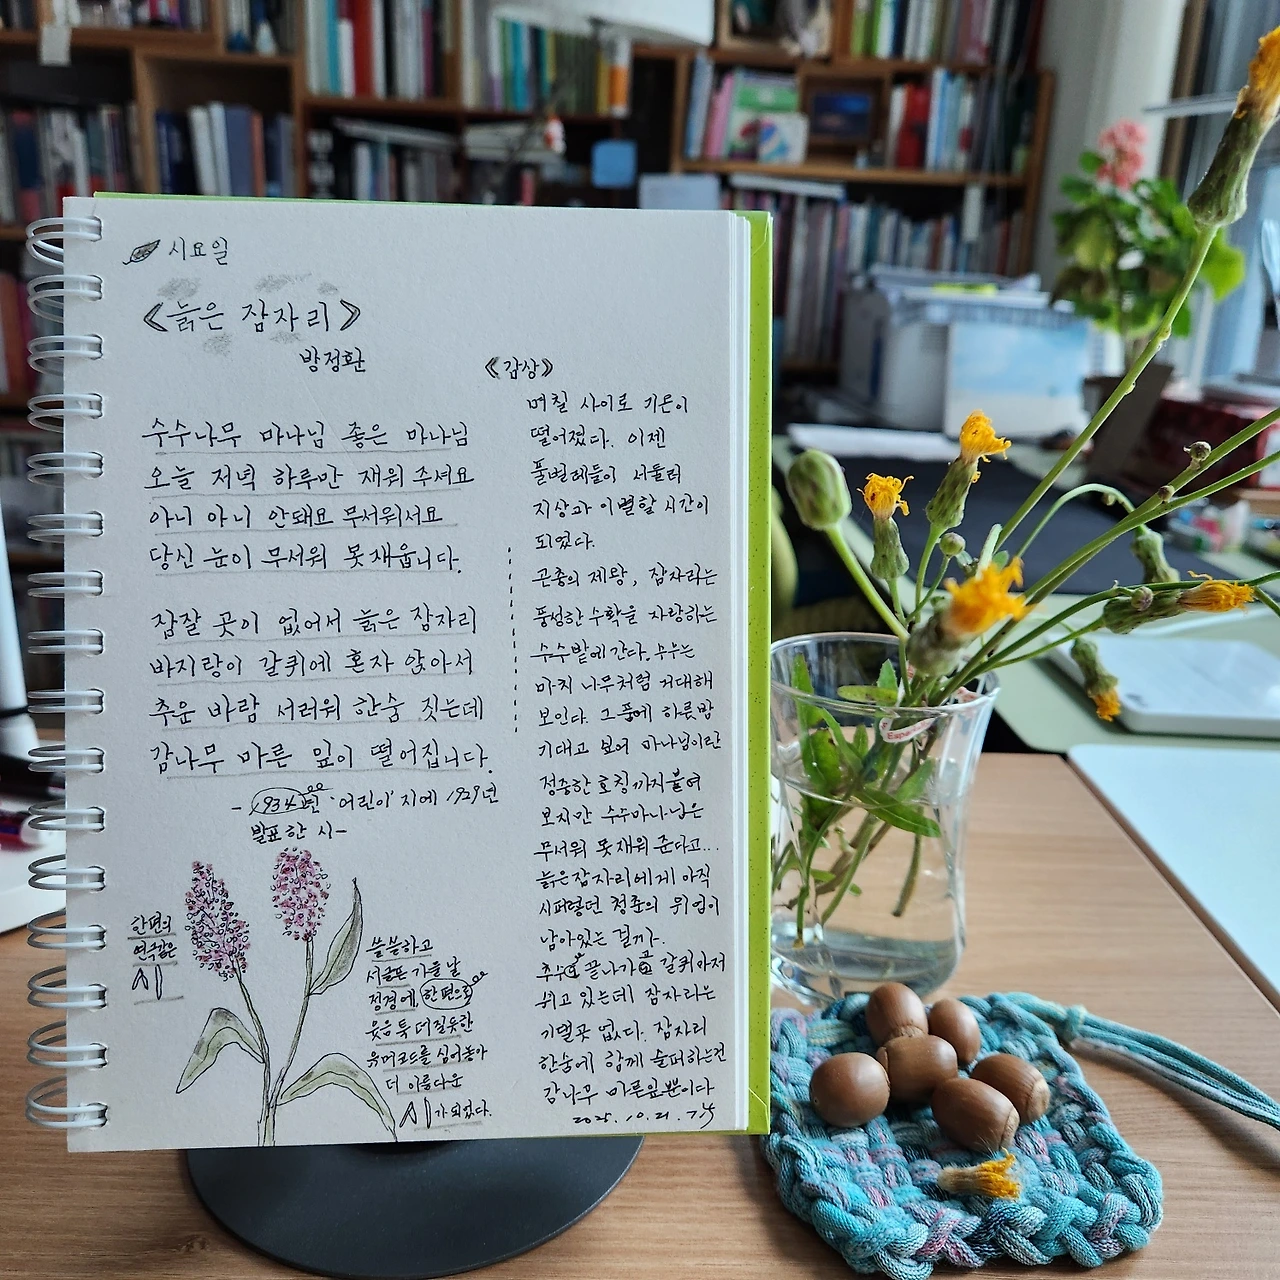 시요일
《늙은 잠자리》
방정환
수수나무 마나님 좋은 마나님
오늘 저녁 하루만 재워 주셔요
아니 아니 안돼요 무서워서요
당신 눈이 무서워 못 재웁니다.
잠잘 곳이 없어서 늙은 잠자리
바지랑이 갈퀴에 혼자 앉아서
추운 바람 서러워 한숨 짓는데
감나무 마른 잎이 떨어집니다.
- 년 '어린이' 지에 1929년
발표한 시-
한편의
연극같은
시
쓸쓸하고
서글픈 가을날
정경에, 한편으로
웃음 툭 터질듯한
유머코드를 심어놓아
더 아름다운
시가 되었다.
《감상》
며칠 사이로 기온이
떨어졌다. 이젠
풀벌레들이 서둘러
지상과 이별할 시간이
되었다.
곤충의 제왕, 잠자리는
풍성한 수확을 자랑하는
수수밭에 간다. 수수는
마치 나무처럼 거대해
보인다. 그 품에 하룻밤
기대고 보여 마나님이란
정중한 호칭까지 붙여
보지만 수수마나님은
무서워 못 재워 준다고...
늙은 잠자리에게 아직
시퍼렇던 청춘의 위엄이
남아있는 걸까.
추수 끝나가고 갈퀴마저
쉬고 있는데 잠자리는
기댈 곳 없다. 잠자리
한숨에 함께 슬퍼하는건
감나무 마른잎 뿐이다
2025. 10. 21.